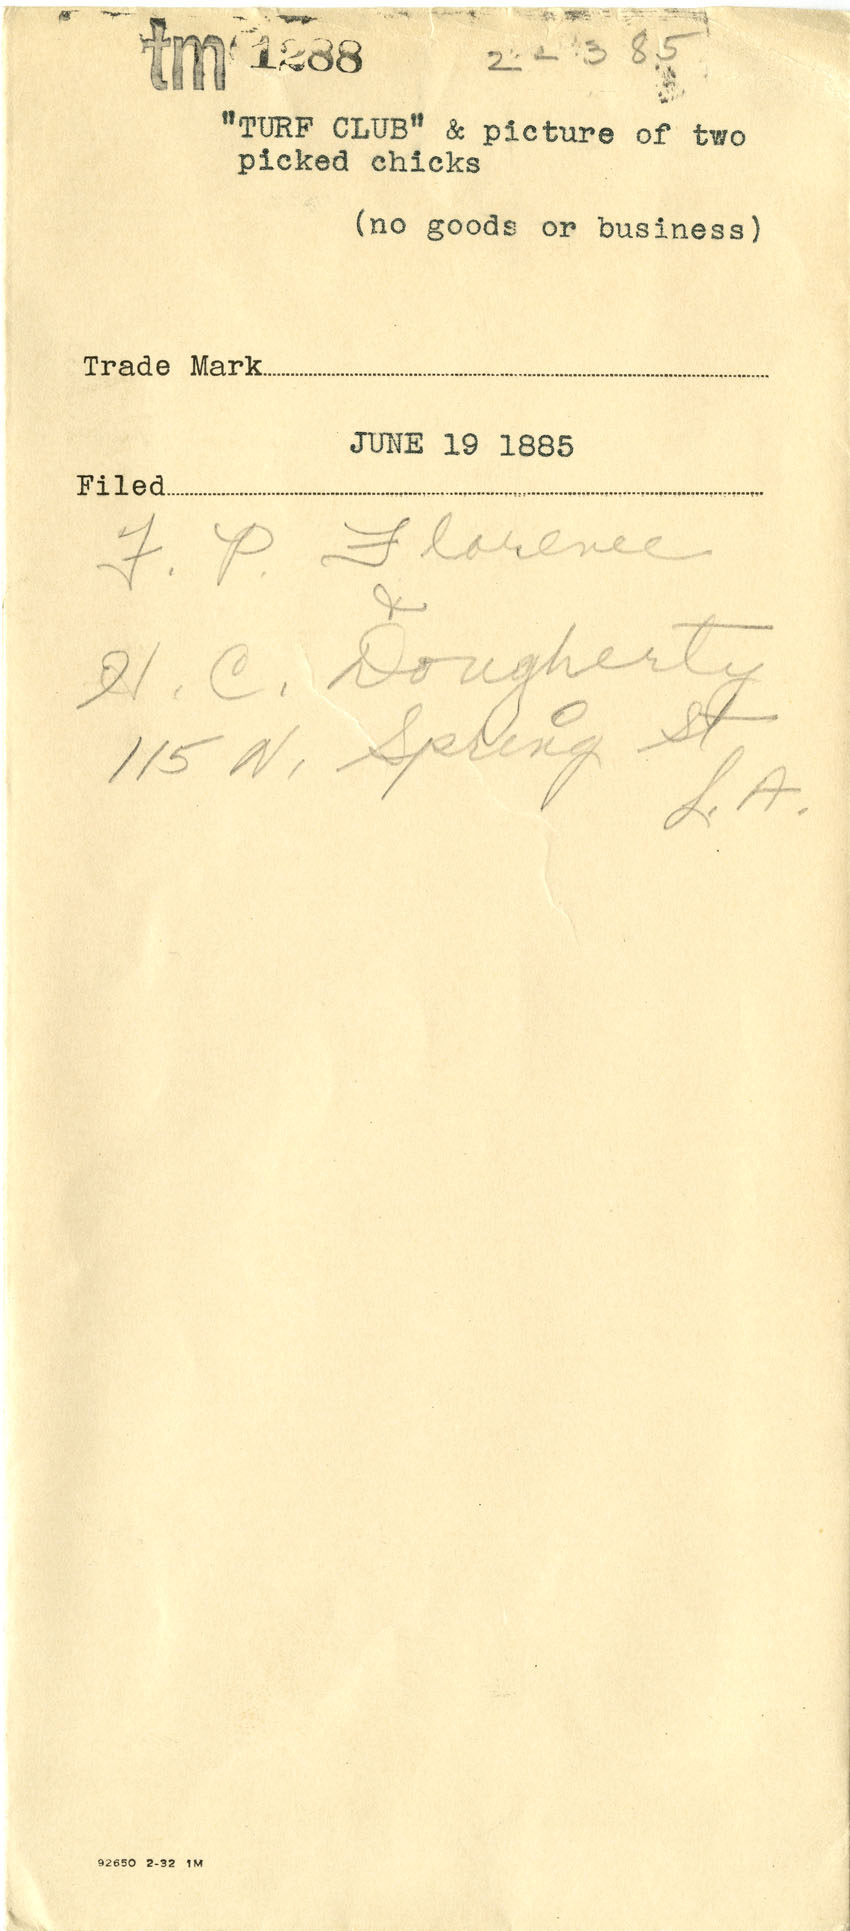 tm 1288
"TURF CLUB" & picture of two
picked chicks
(no goods or business)
Trade Mark
JUNE 19 1885
Filed
F. P. Florence
&
H. C. Dougherty
115 N. Spring St
L. A.
92650 2-32 1M